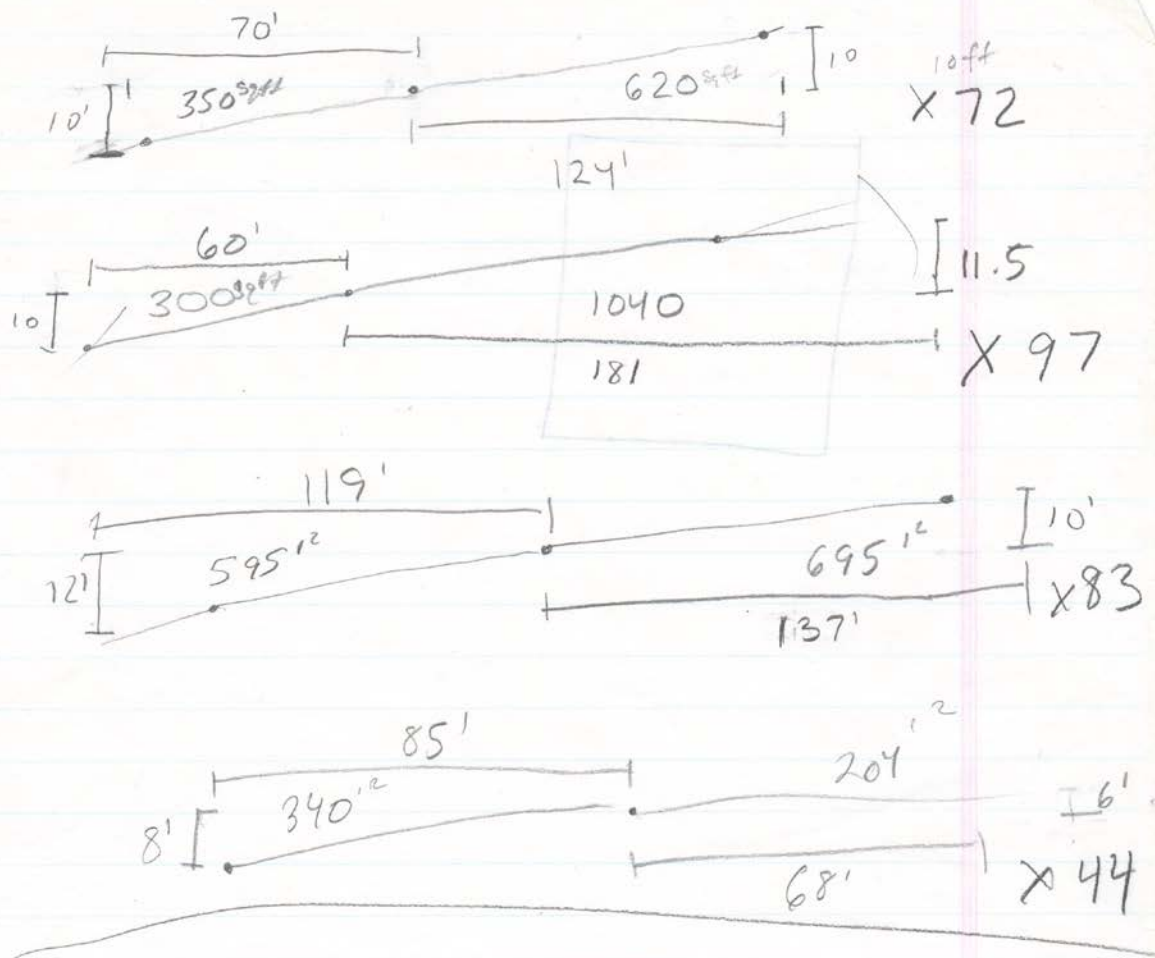 70'
10' 350 sqft 620 sqft 10 10ft
X 72
124'
60'
10 300 sqft 1040 11.5
181 X 97
119'
12' 595'² 695'² 10'
137' X83
85' 204'²
8' 340'² 6'
68' X 44